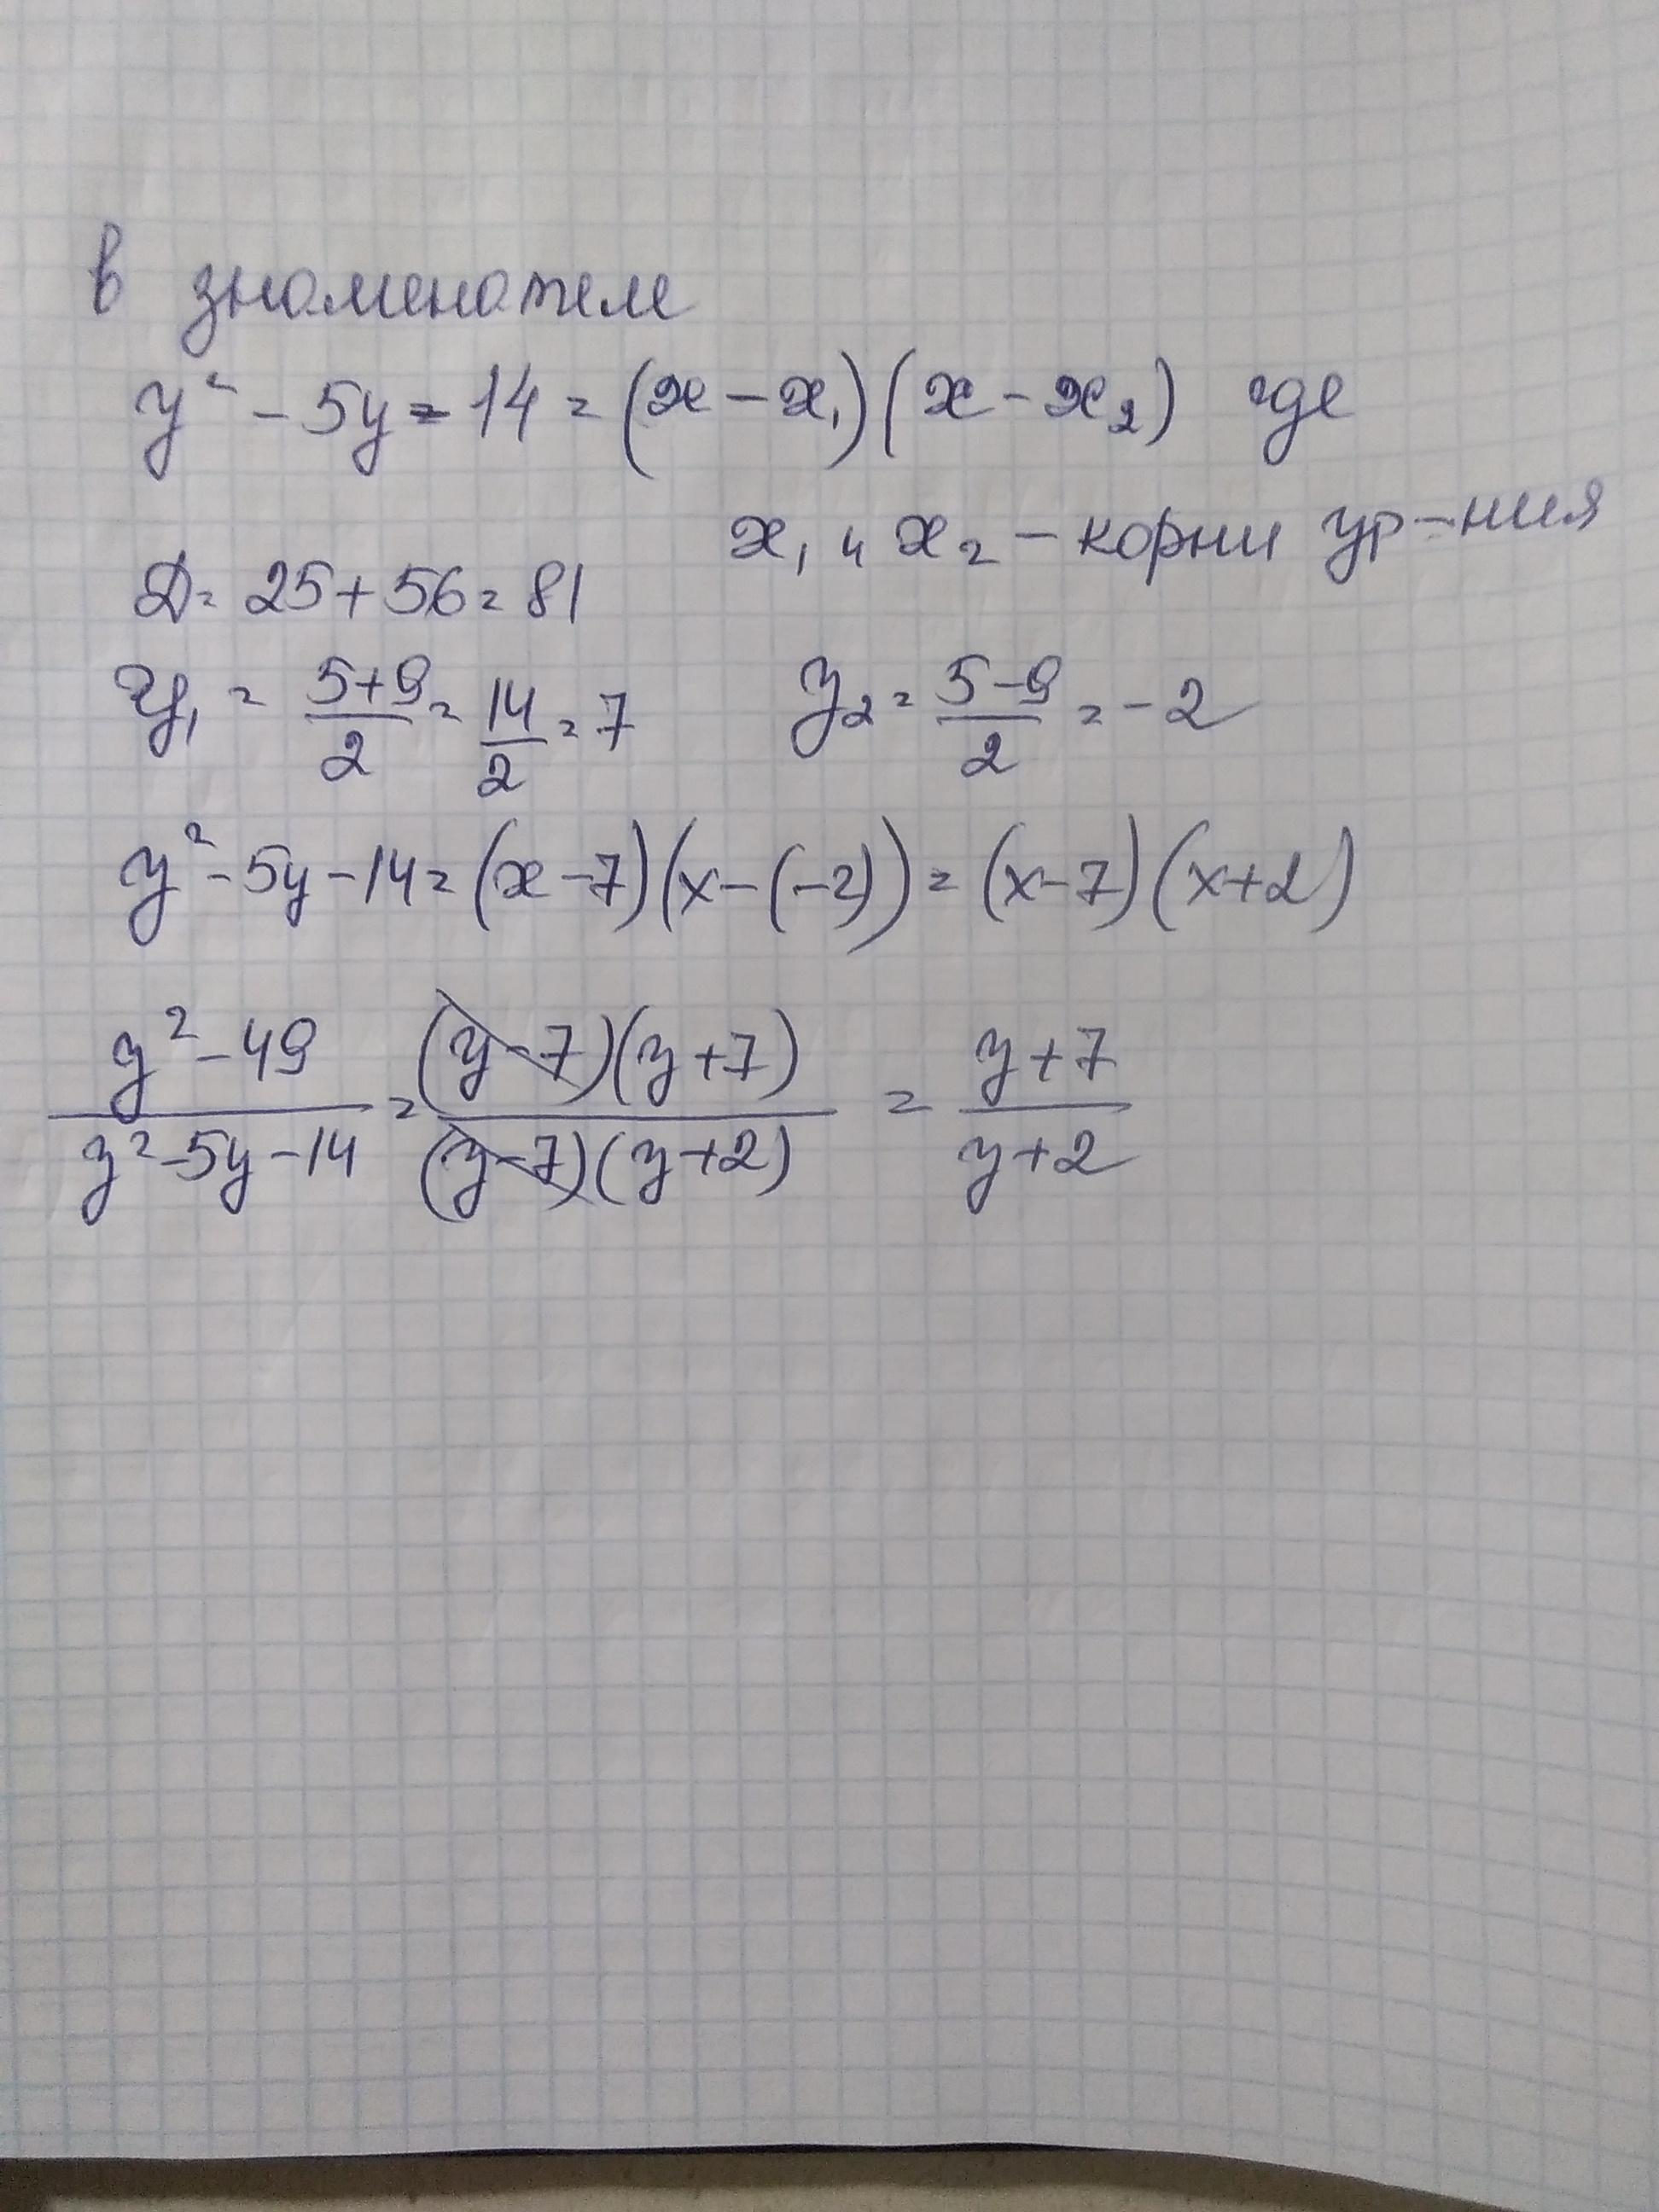 в знаменателе
y² - 5y - 14 = (x - x₁)(x - x₂) где
x₁ и x₂ - корни ур-ния
D = 25 + 56 = 81
y₁ = (5+9)/2 = 14/2 = 7 y₂ = (5-9)/2 = -2
y² - 5y - 14 = (x - 7)(x - (-2)) = (x - 7)(x + 2)
(y² - 49)/(y² - 5y - 14) = ((y - 7)(y + 7))/((y - 7)(y + 2)) = (y + 7)/(y + 2)